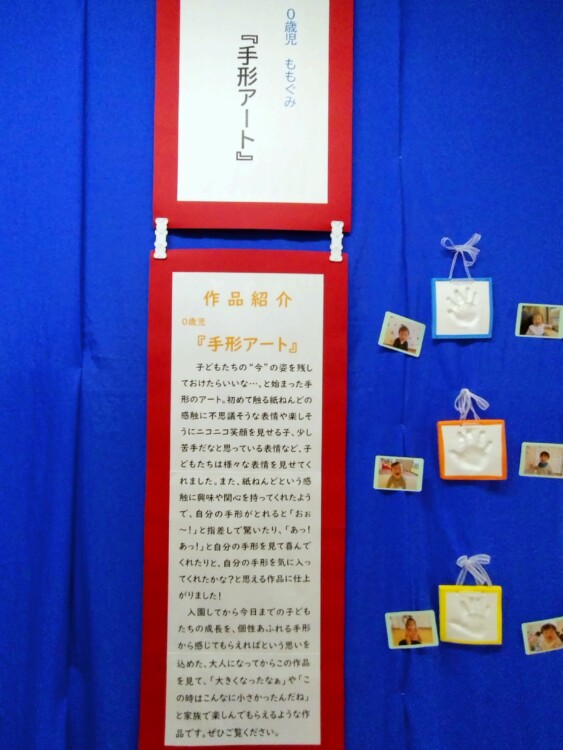 0歳児　ももぐみ
『手形アート』
作品紹介
0歳児
『手形アート』
子どもたちの“今”の姿を残し
ておけたらいいな…、と始まった手
形のアート。初めて触る紙ねんどの
感触に不思議そうな表情や楽しそ
うにニコニコ笑顔を見せる子、少し
苦手だなと思っている表情など、子
どもたちは様々な表情を見せてく
れました。また、紙ねんどという感
触に興味や関心を持ってくれたよう
で、自分の手形がとれると「おぉ
～！」と指差しで驚いたり、「あっ！
あっ！」と自分の手形を見て喜んで
くれたりと、自分の手形を気に入っ
てくれたかな？と思える作品に仕上
がりました！
入園してから今日までの子ども
たちの成長を、個性あふれる手形
から感じてもらえればという思いを
込めた、大人になってからこの作品
を見て、「大きくなったなぁ」や「こ
の時はこんなに小さかったんだね」
と家族で楽しんでもらえるような作
品です。ぜひご覧ください。